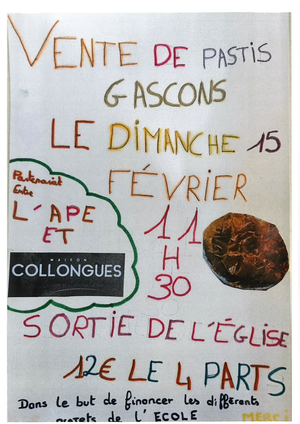 VENTE DE PASTIS
GASCONS
LE DIMANCHE 15
FÉVRIER
Partenariat
Entre
L'APE
ET
MAISON
COLLONGUES
11
H
30
SORTIE DE L'ÉGLISE
12€ LE 4 PARTS
Dans le but de financer les différents
projets de l'ECOLE
MERCI